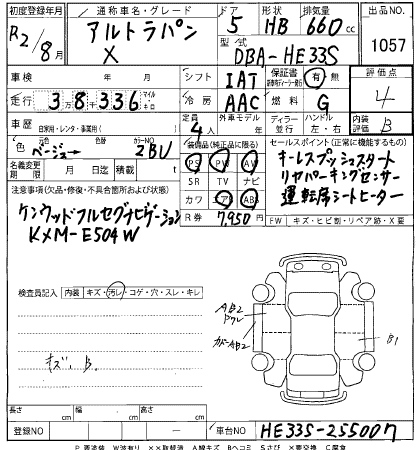 初度登録年月 通称車名・グレード ドア 形状 排気量 出品NO.
R2/8月 アルトラパン X 5 HB 660cc 1057
型式 DBA-HE33S
車検 年 月 シフト IAT 保証書 有 無 評価点 4
走行 38336 マイル キロ 冷房 AAC 燃料 G
車歴 自家用・レンタ・事業用( ) 定員 4人 外車モデル 年 ディーラー 並行 ハンドル 左・右 内装評価 B
色 ベージュ 色替 カラーNO ZBU
装備品(純正品に限る) セールスポイント(正常に機能するもの)
PS PW AW キーレスプッシュスタート
名義変更期限 月 日 積載 t SR TV ナビ リヤパーキングセンサー
カワ エアB ABS 運転席シートヒーター
注意事項(欠品・修復・不具合箇所および状態) R券 7,950円
FW キズ・ヒビ・リペア跡・X要
ケンウッドフルセグナビゲーション
KXM-E504W
検査員記入 内装 キズ・汚レ・コゲ・穴・スレ・キレ
AB2
カドAB2
B1
キズ、B.
長さ cm 幅 cm 高さ cm
登録NO 車台NO HE33S-255007